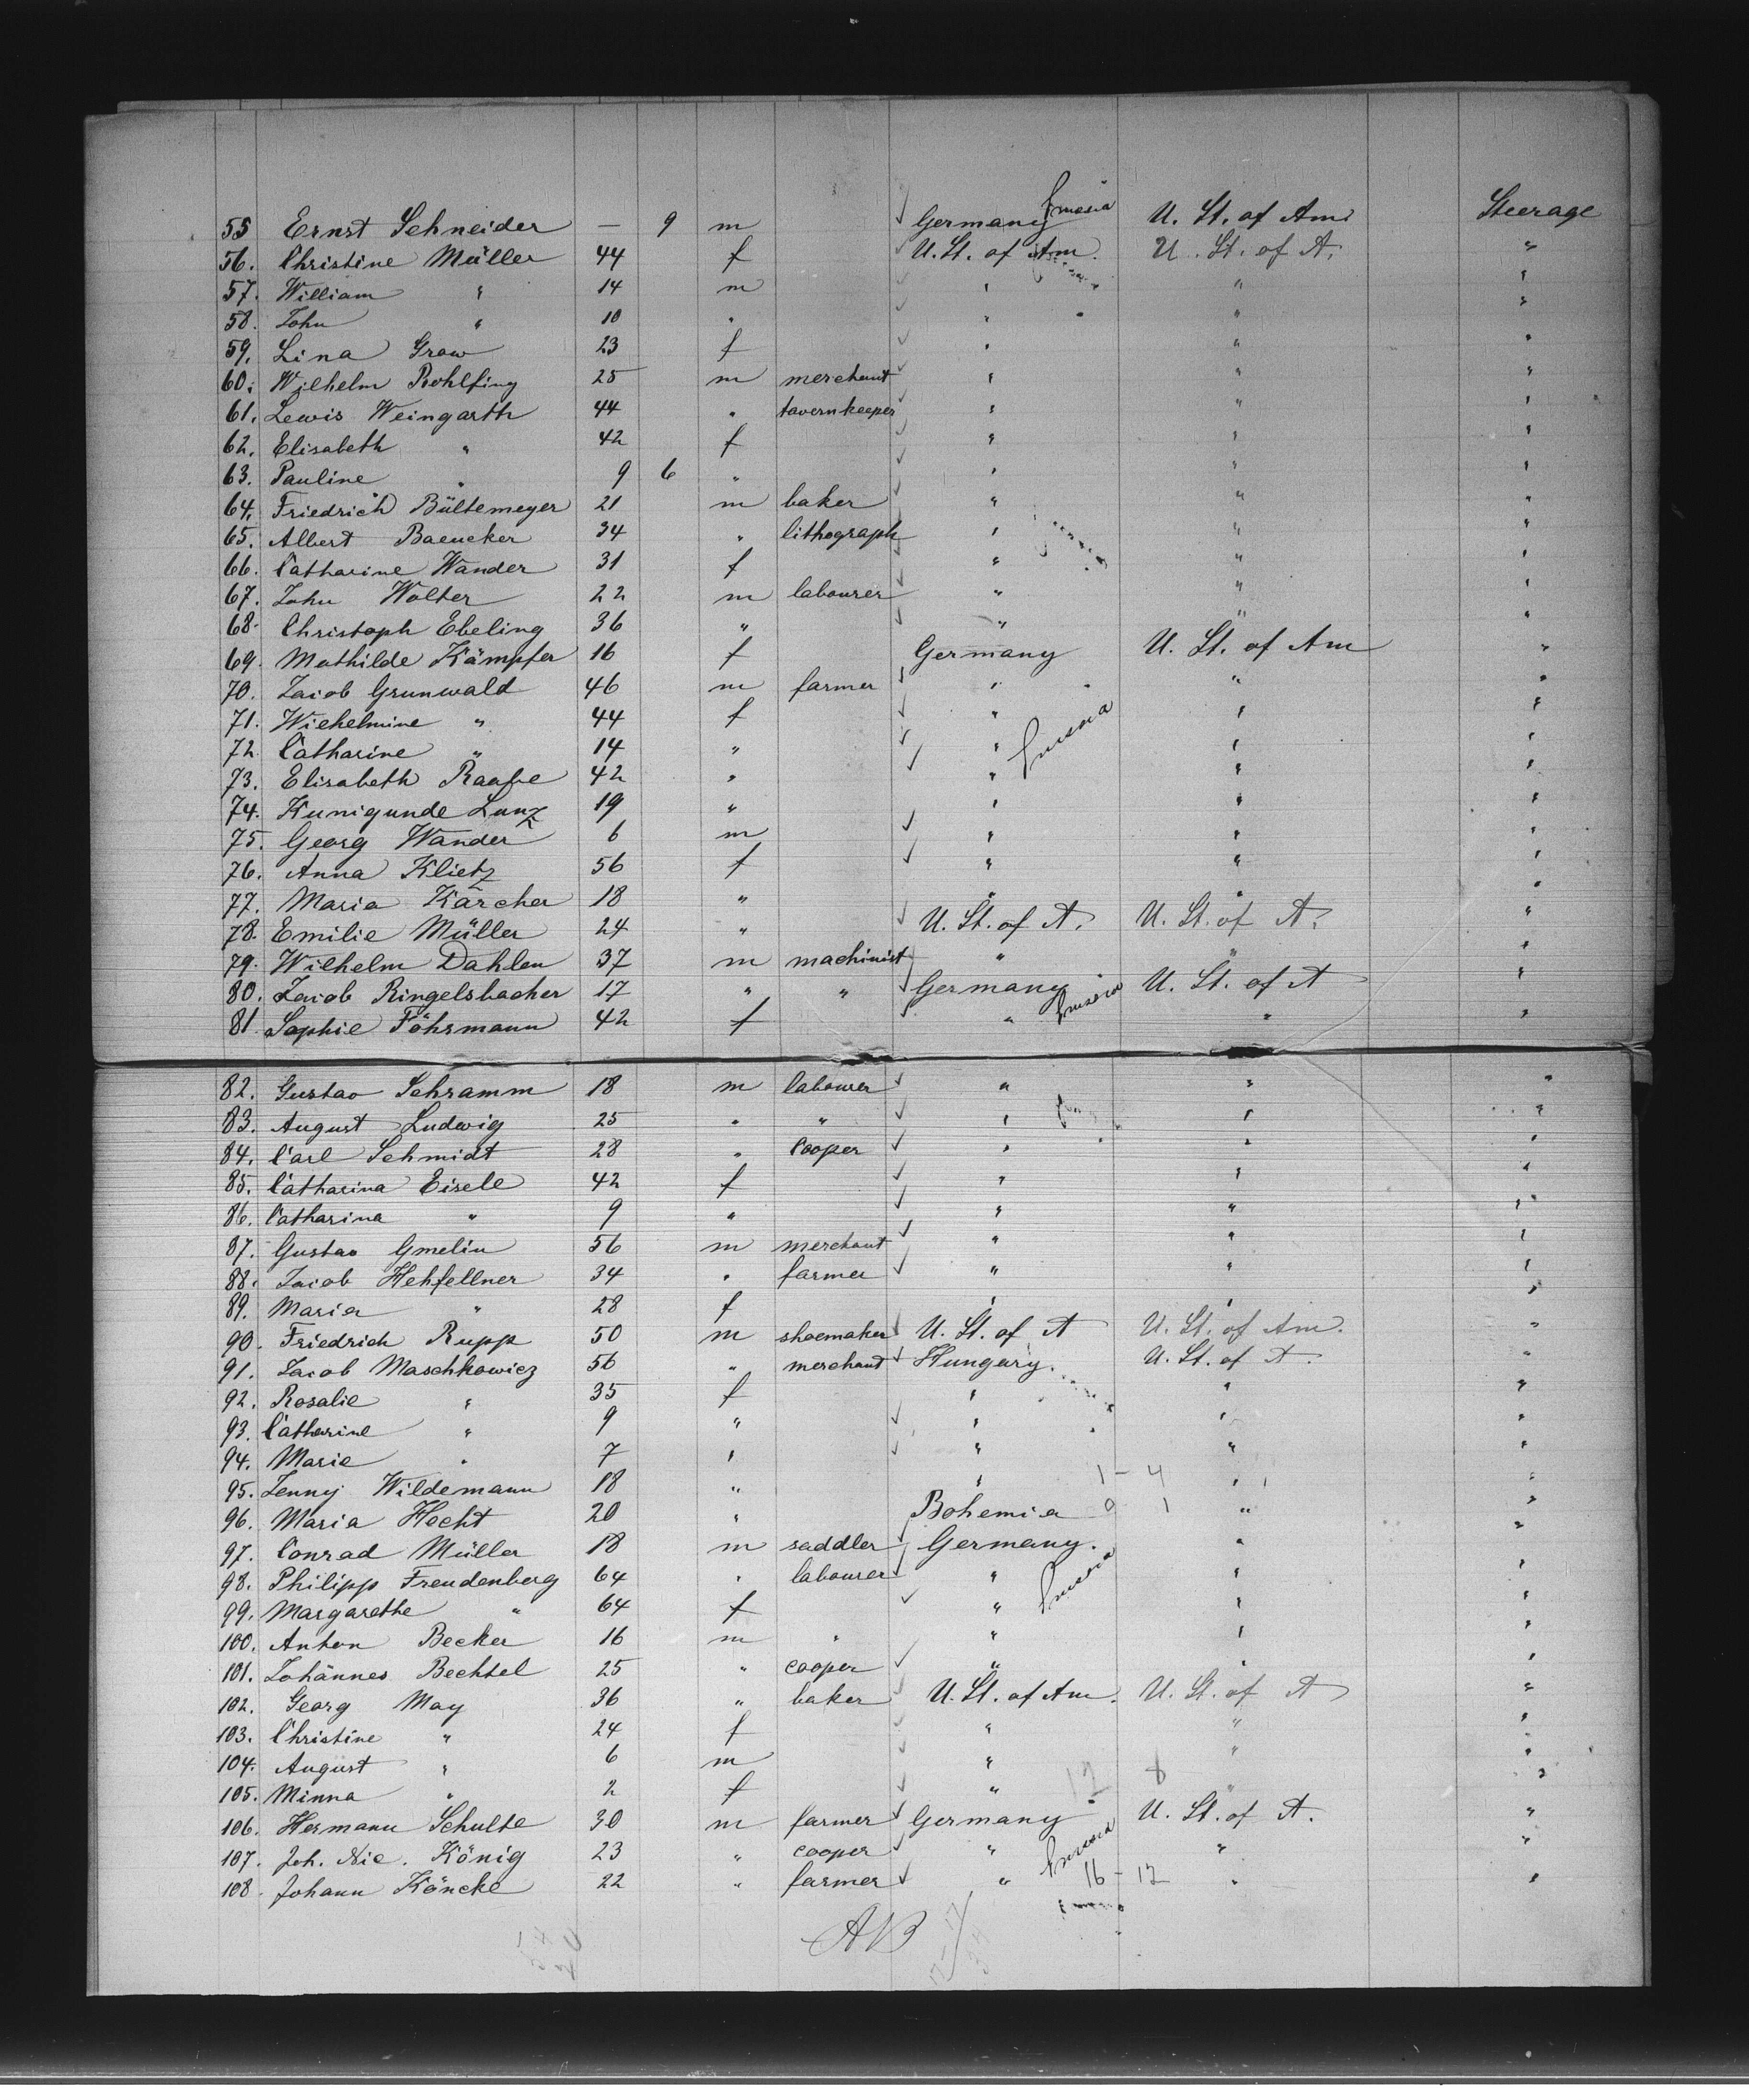 55 Ernst Schneider — 9 m Germany Prussia U. St. of Am. Steerage
56. Christine Müller 44 f U. St. of Am. U. St. of A. "
57. William " 14 m " " "
58. John " 10 " " " "
59. Lina Graw 23 f " " "
60. Wilhelm Rohlfing 25 m merchant " " "
61. Lewis Weingarth 44 " tavernkeeper " " "
62. Elisabeth " 42 f " " "
63. Pauline " 9 6 " " " "
64. Friedrich Bültemeyer 21 m baker " " "
65. Albert Baencker 34 " lithograph " " "
66. Catharine Wander 31 f " " "
67. John Wolter 22 m labourer " " "
68. Christoph Ebeling 36 " " " "
69. Mathilde Kämpfer 16 f Germany U. St. of Am "
70. Jacob Grunwald 46 m farmer " " "
71. Wiehelmine " 44 f " " "
72. Catharine " 14 " " Prussia " "
73. Elisabeth Raabe 42 " " " "
74. Kunigunde Lunz 19 " " " "
75. Georg Wander 6 m " " "
76. Anna Klietz 56 f " " "
77. Maria Kärcher 18 " " " "
78. Emilie Müller 24 " U. St. of A. U. St. of A. "
79. Wilhelm Dahlen 37 m machinist " " "
80. Jacob Ringelsbacher 17 " " Germany U. St. of A "
81. Sophie Föhrmann 42 f " Prussia " "
82. Gustav Schramm 18 m labourer " " "
83. August Ludwig 25 " " " " "
84. Carl Schmidt 28 " Cooper " " "
85. Catharina Eisele 42 f " " "
86. Catharina " 9 " " " "
87. Gustav Gmelin 56 m merchant " " "
88. Jacob Hehfellner 34 " farmer " " "
89. Maria " 28 f " " "
90. Friedrich Rupp 50 m shoemaker U. St. of A U. St. of Am. "
91. Jacob Maschkowicz 56 " merchant Hungary. U. St. of A. "
92. Rosalie " 35 f " " "
93. Catharine " 9 " " " "
94. Marie " 7 " " " "
95. Jenny Wildemann 18 " " 1 - 4 " "
96. Maria Hecht 20 " Bohemia 9 1 " "
97. Conrad Müller 18 m saddler Germany. " "
98. Philipp Freudenberg 64 " labourer " Prussia " "
99. Margarethe " 64 f " " "
100. Anton Becker 16 m " " " "
101. Johannes Bechtel 25 " cooper " " "
102. Georg May 36 " baker U. St. of Am. U. St. of A "
103. Christine " 24 f " " "
104. August " 6 m " " "
105. Minna " 2 f " 12 8 " "
106. Hermann Schulte 30 m farmer Germany U. St. of A. "
107. Joh. Nic. König 23 " cooper " Prussia " "
108. Johann Köncke 22 " farmer " 16 - 12 " "
AB